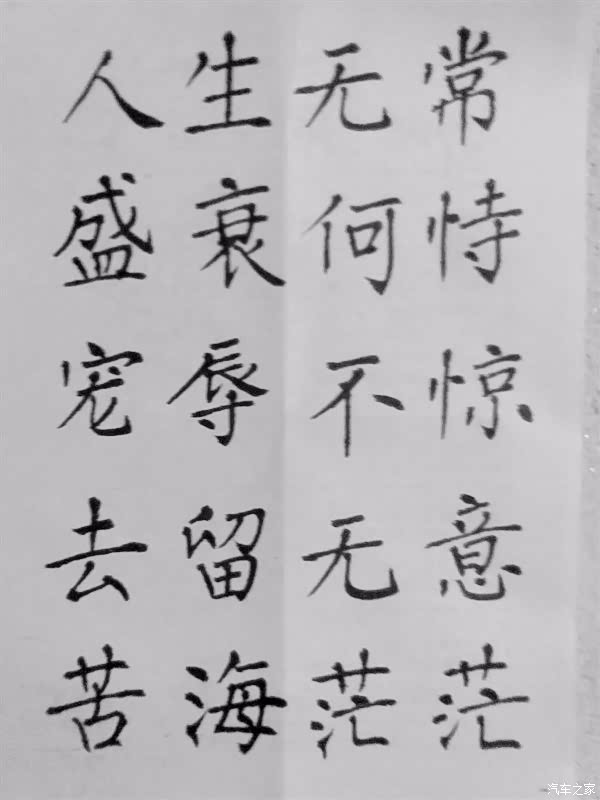 人生无常
盛衰何恃
宠辱不惊
去留无意
苦海茫茫
汽车之家